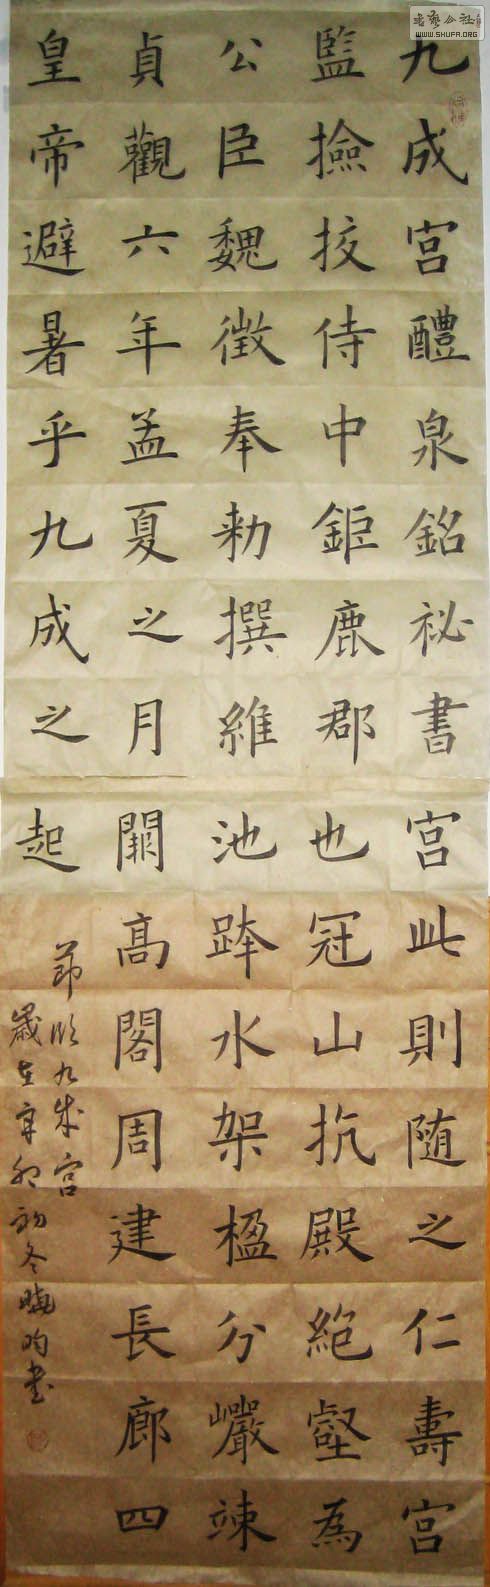 九成宮醴泉銘祕書
監撿挍侍中鉅鹿郡
公臣魏徵奉勑撰維
貞觀六年孟夏之月
皇帝避暑乎九成之
宮此則随之仁壽宮
也冠山抗殿絕壑為
池跨水架楹分巖竦
闕高閣周建長廊四
起
節臨九成宮
歲在辛卯初冬曉昀書
書藝公社
WWW.SHUFA.ORG